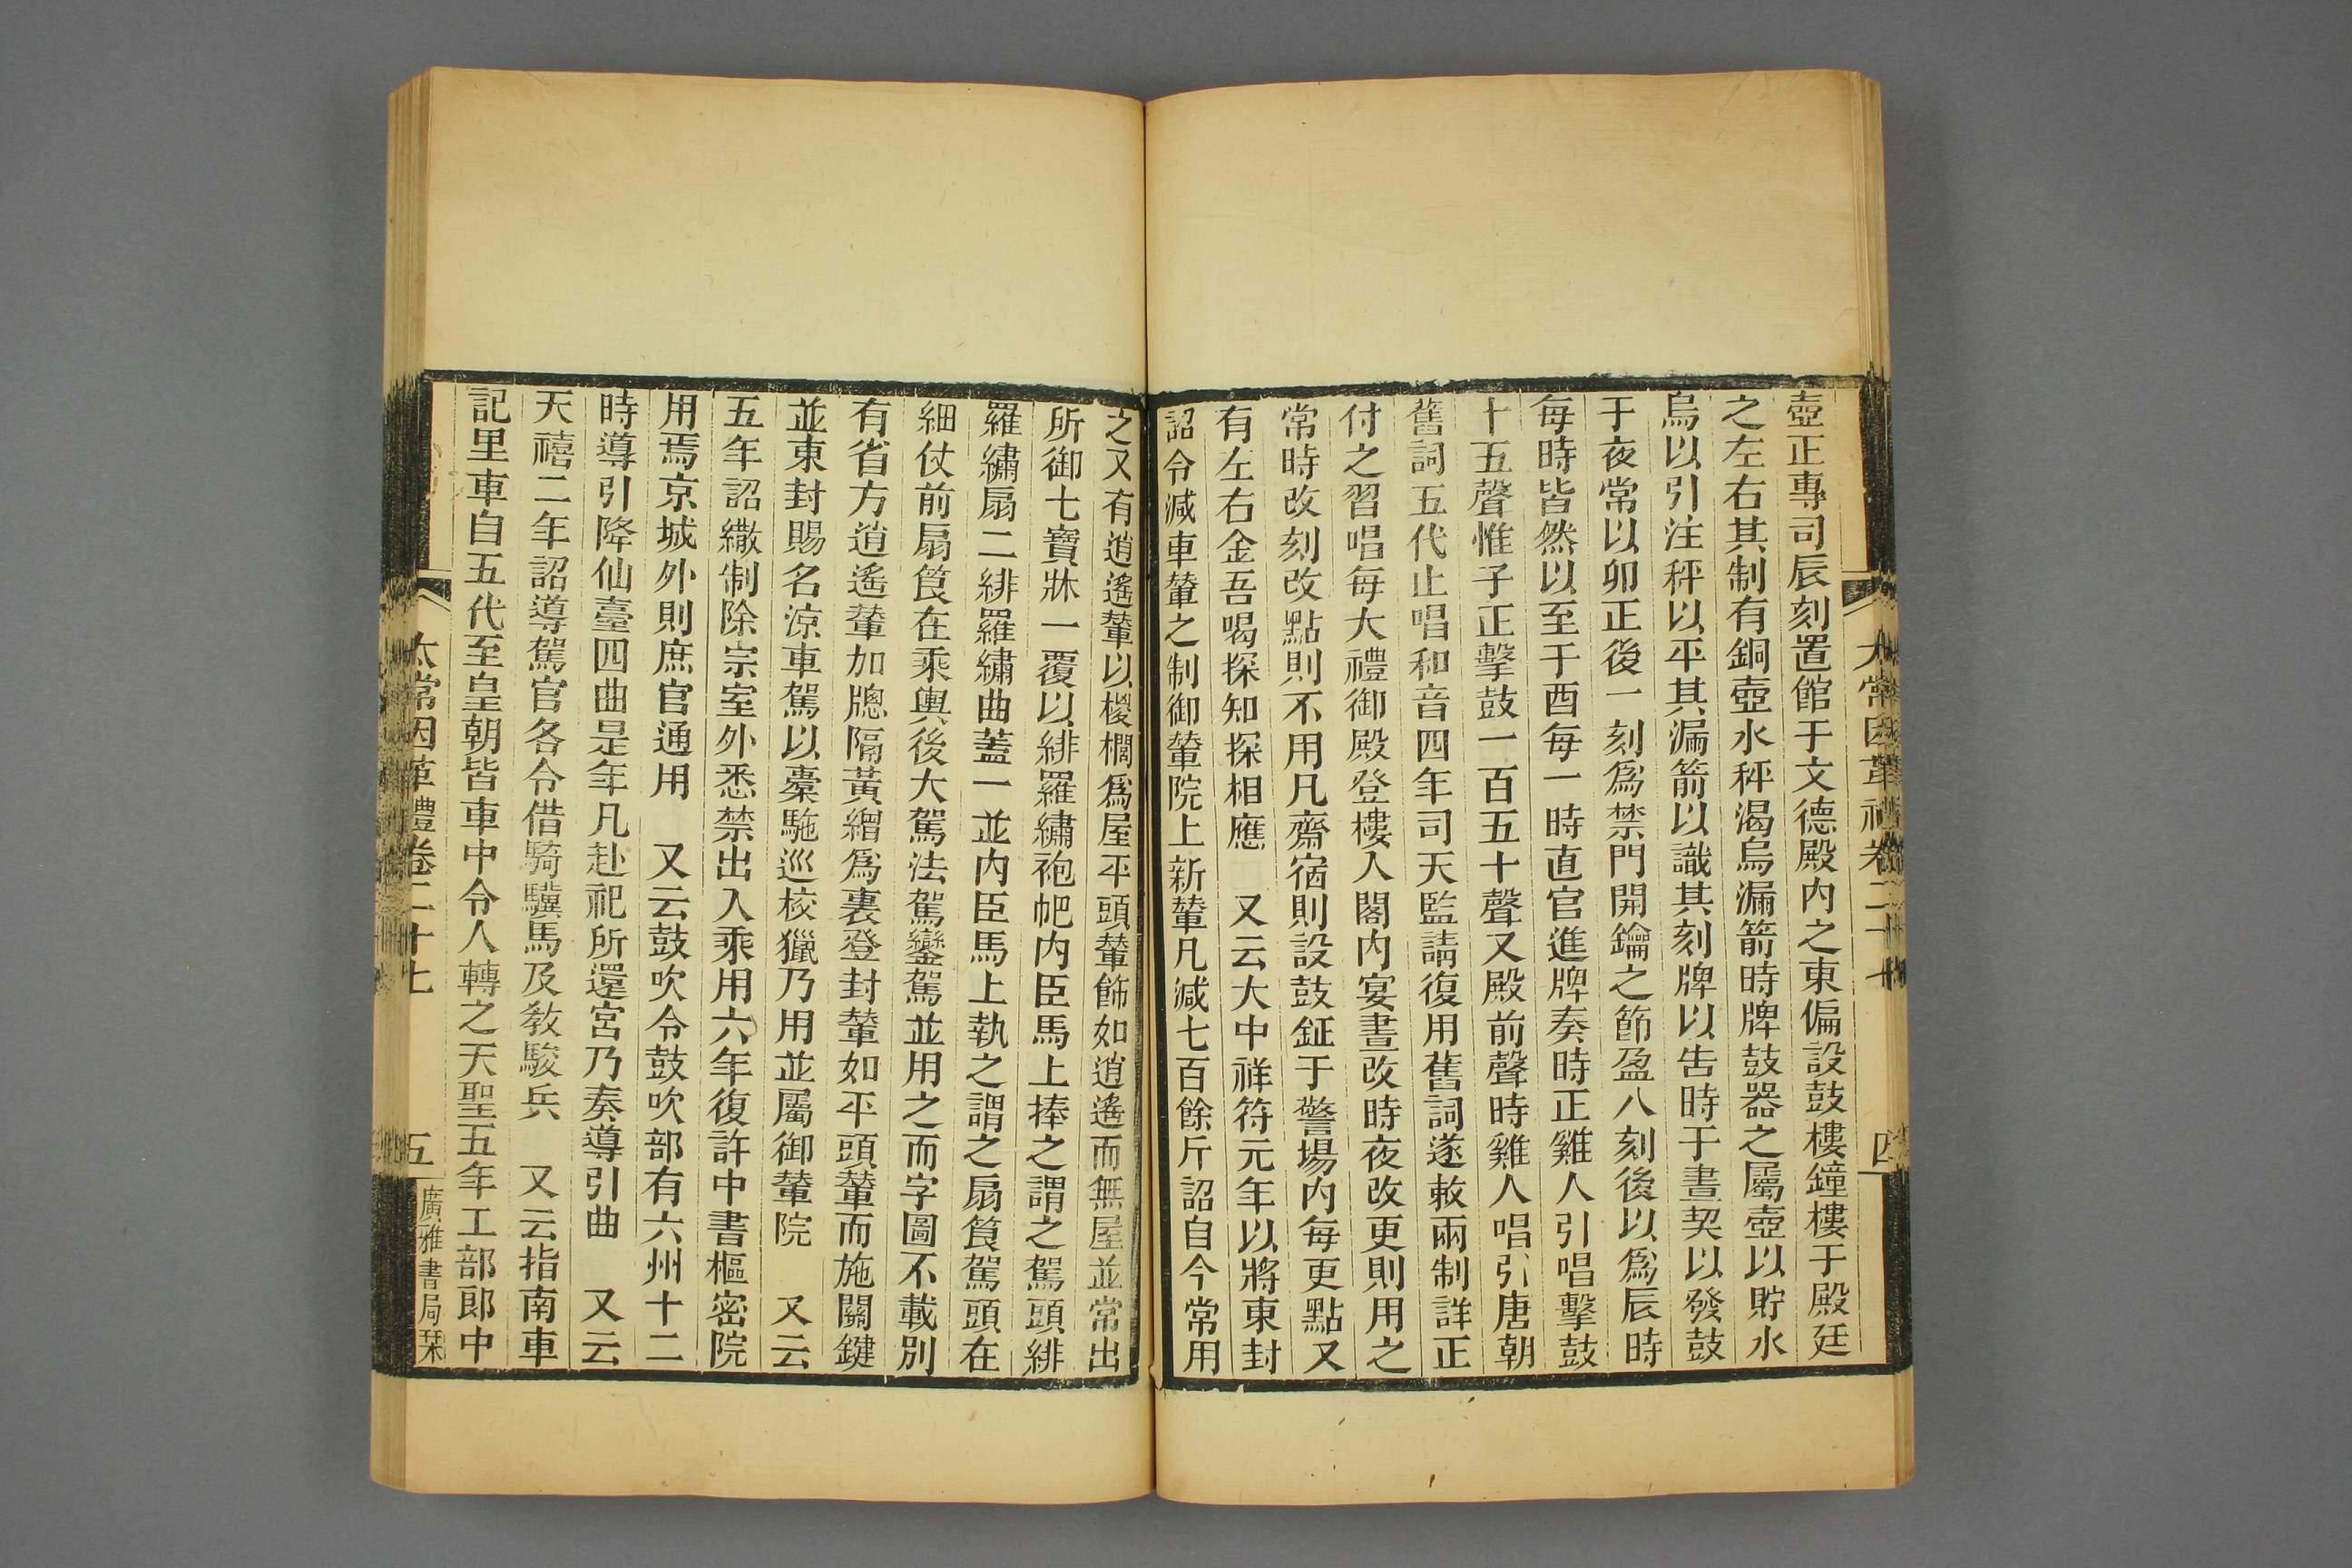 壺正專司辰刻置館于文德殿內之東偏設鼓樓鐘樓于殿廷
之左右其制有銅壺水秤渴烏漏箭時牌鼓器之屬壺以貯水
烏以引注秤以平其漏箭以識其刻牌以吿時于晝契以發鼓
于夜常以卯正後一刻爲禁門開鑰之節盈八刻後以爲辰時
每時皆然以至于酉每一時直官進牌奏時正雞人引唱擊鼓
十五聲惟子正擊鼓一百五十聲又殿前聲時雞人唱引唐朝
舊詞五代止唱和音四年司天監請復用舊詞遂敕兩制詳正
付之習唱每大禮御殿登樓入閣內宴晝改時夜改更則用之
常時改刻改點則不用凡齋宿則設鼓鉦于警場內每更點又
有左右金吾喝探知探相應　又云大中祥符元年以將東封
詔令減車輦之制御輦院上新輦凡減七百餘斤詔自今常用
太常因革禮卷二十七
四
之又有逍遙輦以椶櫚爲屋平頭輦飾如逍遙而無屋並常出
所御七寶牀一覆以緋羅繡袍帊內臣馬上捧之謂之駕頭緋
羅繡扇二緋羅繡曲蓋一並內臣馬上執之謂之扇筤駕頭在
細仗前扇筤在乘輿後大駕法駕鑾駕並用之而字圖不載別
有省方逍遙輦加牕隔黃繒爲裏登封輦如平頭輦而施關鍵
並東封賜名涼車駕以橐駞巡校獵乃用並屬御輦院　又云
五年詔繖制除宗室外悉禁出入乘用六年復許中書樞密院
用焉京城外則庶官通用　又云鼓吹令鼓吹部有六州十二
時導引降仙臺四曲是年凡赴祀所還宮乃奏導引曲　又云
天禧二年詔導駕官各令借騎驥馬及教駿兵　又云指南車
記里車自五代至皇朝皆車中令人轉之天聖五年工部郎中
太常因革禮卷二十七
五
廣雅書局栞